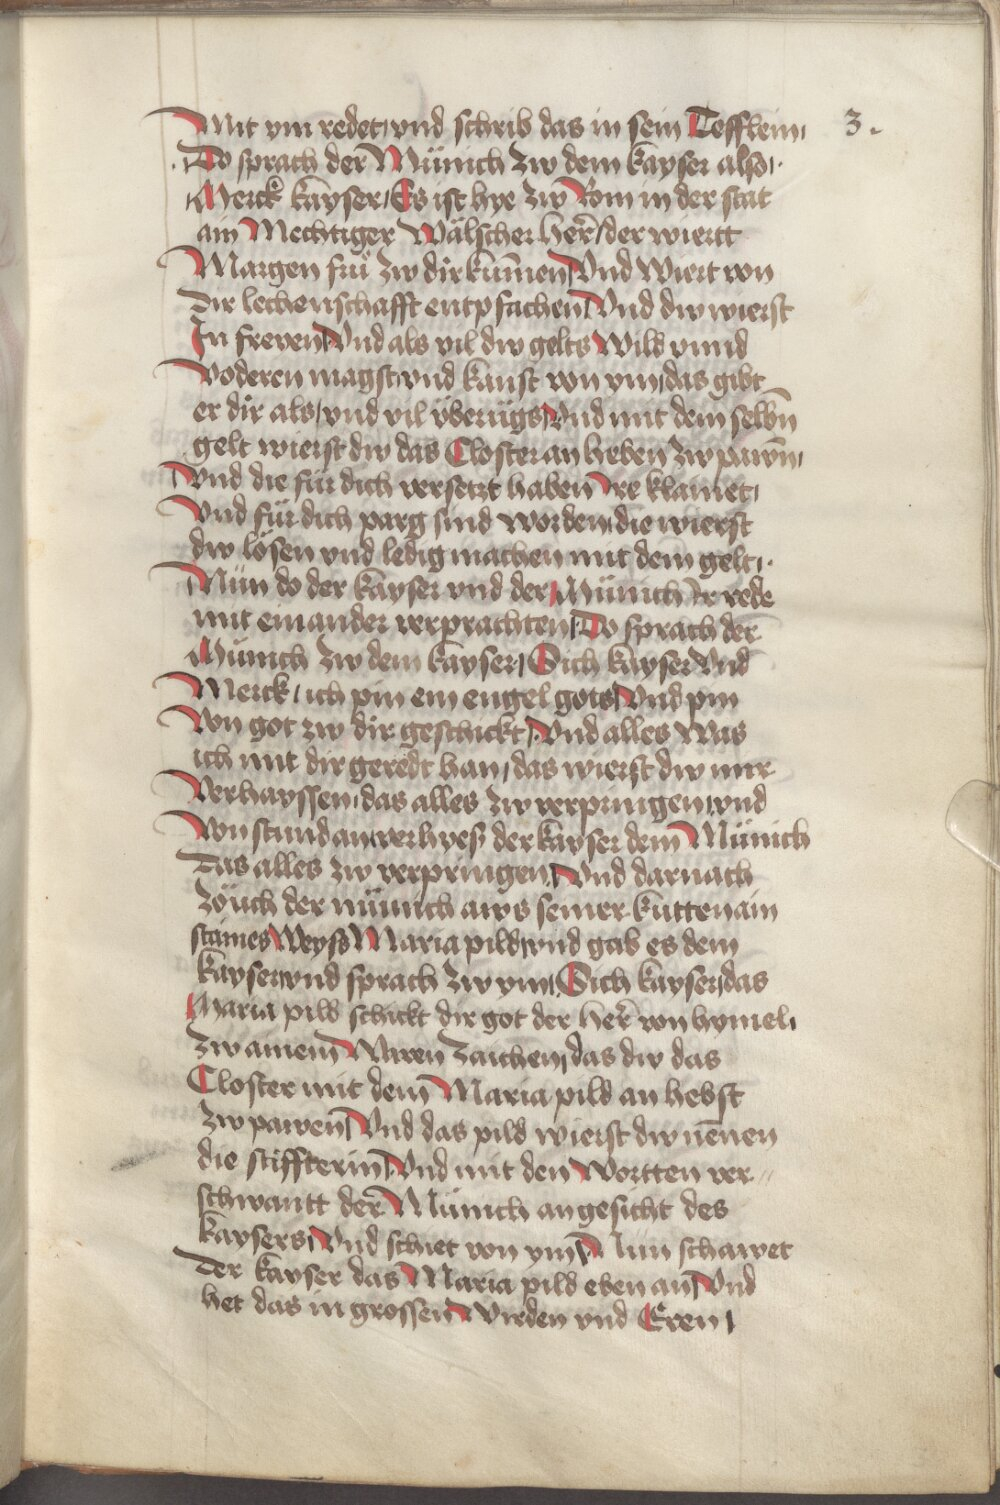 3.
Mit ym redet/ vnd schrib das in sein Tefflein/
Do sprach der Münich zw dem kayser also/
Merck kayser/ Es ist hye zw Rom in der stat
ain Mechtiger Wälscher her̄/ der wiertt
Margen frü zw dir kum̄en/ Vnd Wiert von
Dir lechenschafft entpfachen/ Vnd dw wierst
In freyen/ Vnd als vil dw gelts Wild vnnd
Voderen magst/ vnd kanst von ym/ das gibt
er dir als/ vnd vil überügs/ Vnd mit dem selbn̄
gelt wierst dw das Closter an heben zw pawn̄/
Vnd die für dich versetzt haben Ire klainet/
Vnd für dich parg sind worden/ die wierst
dw lösen vnd ledig machen mit dem gelt/
Nün do der kayser vnd der Münich Ir rede
mit einander verprachten/ Do sprach der
Münich zw dem kayser/ Sich kayser Vnd
Merck/ ich pin ein engel gots/ Vnd pin
Von got zw dir geschickt/ Vnd alles Was
ich mit dir geredt han/ das wierst dw mir
Verhayssen/ das alles zw verpringen/ vnd
Von stund an/ verhyeß der kayser dem Münich
Das alles zw verpringen/ Vnd darnach
Zöuch der münich aws seiner kutten ain
staines Weyss Maria pild/ vnd gab es dem
kayser/ vnd sprach zw ym/ Sich kayser/ das
Maria pild schickt dir got der her̄ von hymel/
Zw ainem Waren zaichen/ das dw das
Closter mit dem Maria pild an hebst
zw pawen/ Vnd das pild wierst dw nēnen
die stiffterin/ Vnd mit den Wortten ver//
schwantt der Münich angesicht des
kaysers/ Vnd schiet von ym/ Nün schawet
Der kayser das Maria pild eben an/ Vnd
het das in grossen Wirden vnd Eren/